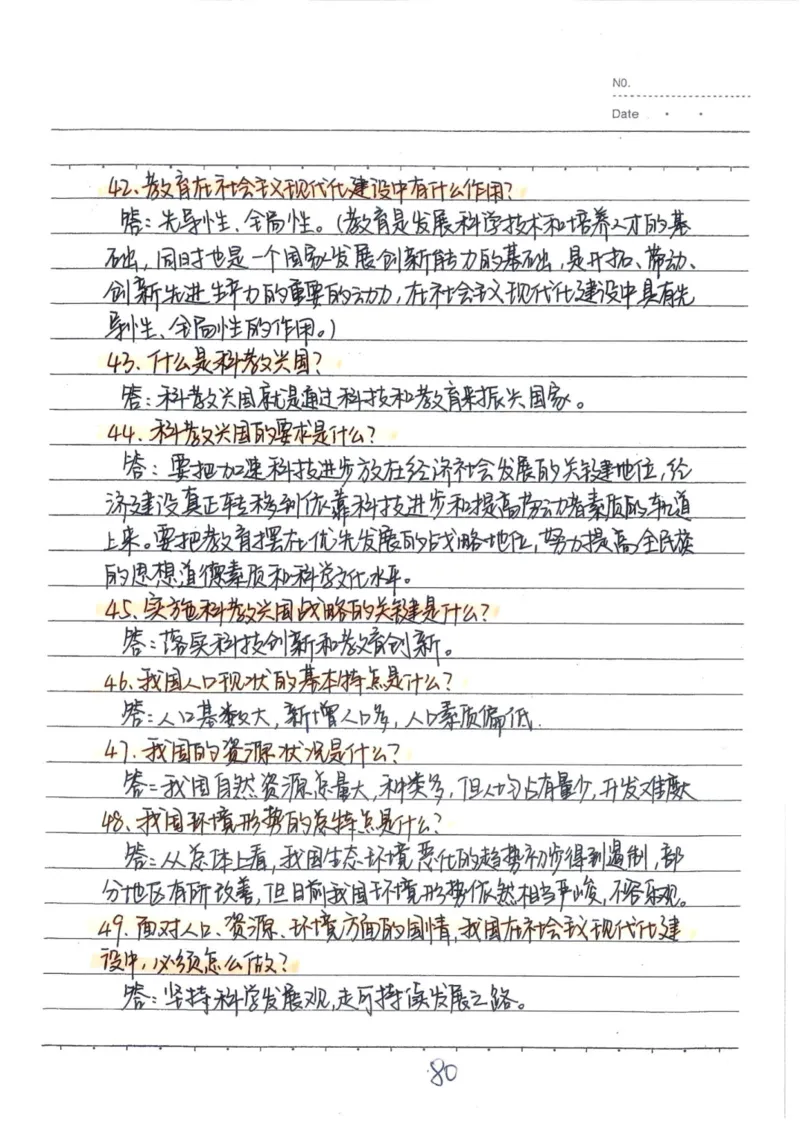 NO.
Date
42、教育在社会主义现代化建设中有什么作用?
答:先导性、全局性。(教育是发展科学技术和培养人才的基
础,同时也是一个国家发展创新能力的基础,是开拓、带动、
创新先进生产力的重要的动力,在社会主义现代化建设中具有先
导性、全局性的作用。)
43、什么是科教兴国?
答:科教兴国就是通过科技和教育来振兴国家。
44、科教兴国的要求是什么?
答:要把加速科技进步放在经济社会发展的关键地位,经
济建设真正转移到依靠科技进步和提高劳动者素质的轨道
上来。要把教育摆在优先发展的战略地位,努力提高全民族
的思想道德素质和科学文化水平。
45、实施科教兴国战略的关键是什么?
答:落实科技创新和教育创新。
46、我国人口现状的基本特点是什么?
答:人口基数大,新增人口多,人口素质偏低.
47、我国的资源状况是什么?
答:我国自然资源总量大,种类多,但人均占有量少,开发难度大
48、我国环境形势的总特点是什么?
答:从总体上看,我国生态环境恶化的趋势初步得到遏制,部
分地区有所改善,但目前我国环境形势依然相当严峻,不容乐观。
49、面对人口、资源、环境方面的国情,我国在社会主义现代化建
设中,必须怎么做?
答:坚持科学发展观,走可持续发展之路。
80